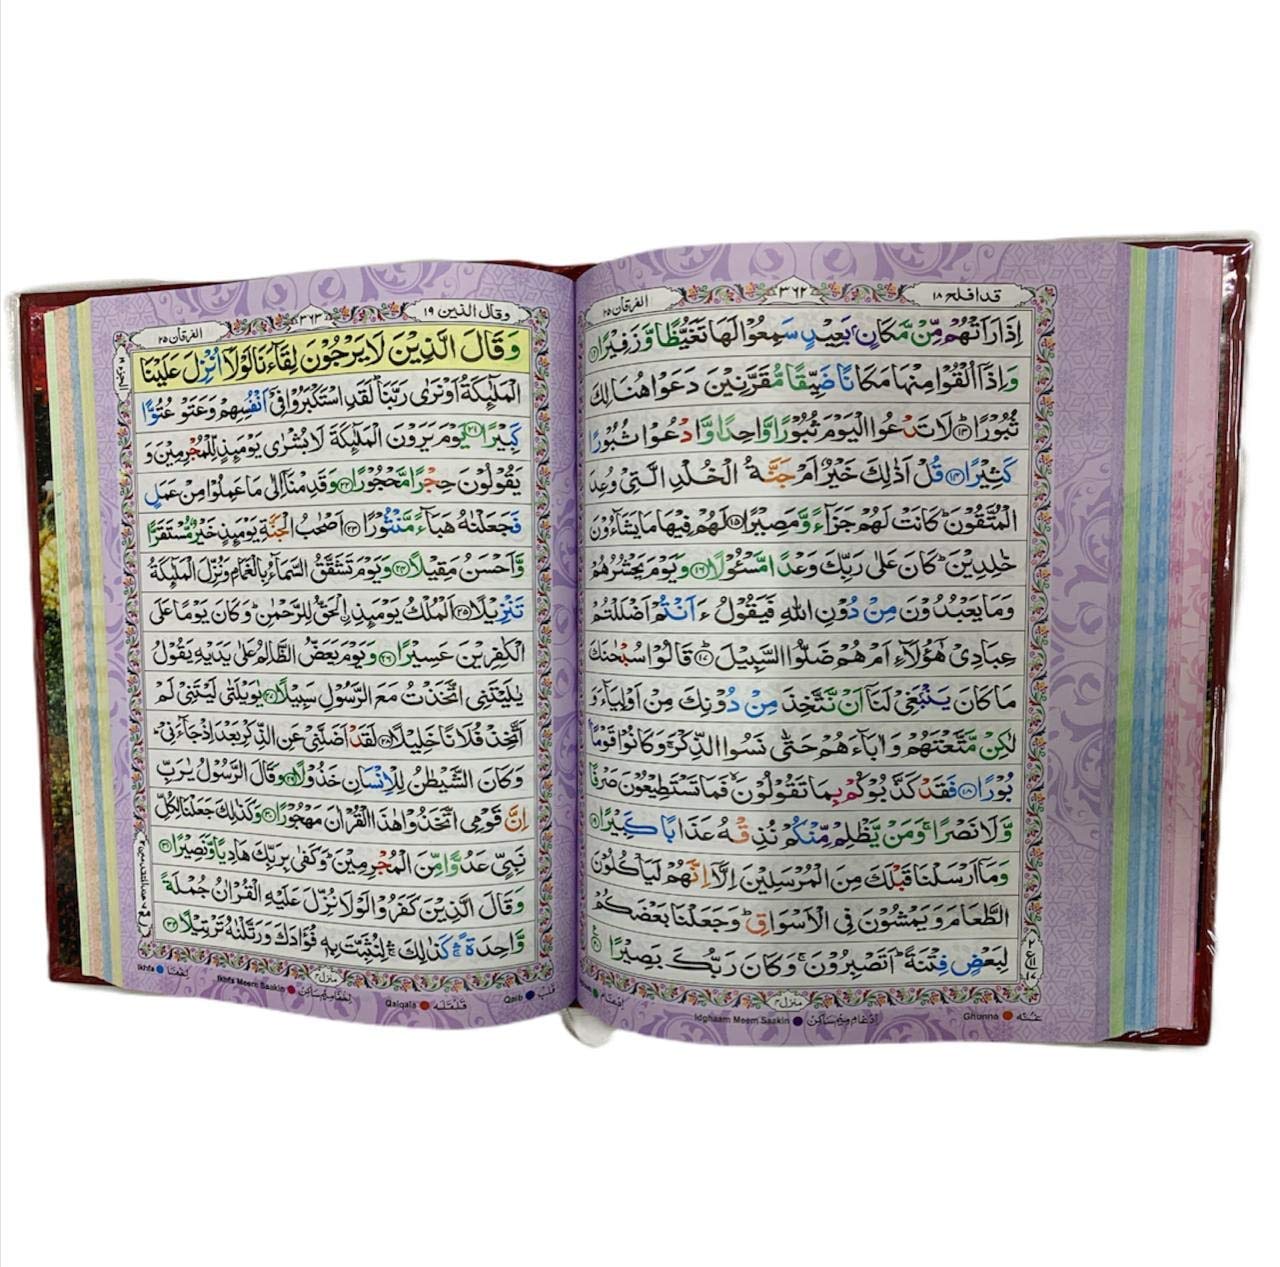 قد افلح ١٨
٣٦٢
الفرقان ٢٥
اِذَا رَاَتْهُمْ مِّنْ مَّكَانٍۭ بَعِيْدٍ سَمِعُوْا لَهَا تَغَيُّظًا وَّ زَفِيْرًا ﴿١٢﴾
وَاِذَاۤ اُلْقُوْا مِنْهَا مَكَانًا ضَيِّقًا مُّقَرَّنِيْنَ دَعَوْا هُنَالِكَ
ثُبُوْرًا ﴿١٣﴾ؕ لَا تَدْعُوا الْيَوْمَ ثُبُوْرًا وَّاحِدًا وَّادْعُوْا ثُبُوْرًا
كَثِيْرًا ﴿١٤﴾ قُلْ اَذٰلِكَ خَيْرٌ اَمْ جَنَّةُ الْخُلْدِ الَّتِيْ وُعِدَ
الْمُتَّقُوْنَؕ كَانَتْ لَهُمْ جَزَآءً وَّمَصِيْرًا ﴿١٥﴾ لَهُمْ فِيْهَا مَا يَشَآءُوْنَ
خٰلِدِيْنَؕ كَانَ عَلٰى رَبِّكَ وَعْدًا مَّسْـُٔوْلًا ﴿١٦﴾ وَيَوْمَ يَحْشُرُهُمْ
وَمَا يَعْبُدُوْنَ مِنْ دُوْنِ اللّٰهِ فَيَقُوْلُ ءَاَنْتُمْ اَضْلَلْتُمْ
عِبَادِيْ هٰۤؤُلَآءِ اَمْ هُمْ ضَلُّوا السَّبِيْلَ ﴿١٧﴾ؕ قَالُوْا سُبْحٰنَكَ
مَا كَانَ يَنْۢبَغِيْ لَنَاۤ اَنْ نَّتَّخِذَ مِنْ دُوْنِكَ مِنْ اَوْلِيَآءَ وَ
لٰكِنْ مَّتَّعْتَهُمْ وَاٰبَآءَهُمْ حَتّٰى نَسُوا الذِّكْرَۚ وَكَانُوْا قَوْمًۢا
بُوْرًا ﴿١٨﴾ فَقَدْ كَذَّبُوْكُمْ بِمَا تَقُوْلُوْنَۙ فَمَا تَسْتَطِيْعُوْنَ صَرْفًا
وَّلَا نَصْرًاۚ وَمَنْ يَّظْلِمْ مِّنْكُمْ نُذِقْهُ عَذَابًا كَبِيْرًا ﴿١٩﴾
وَمَاۤ اَرْسَلْنَا قَبْلَكَ مِنَ الْمُرْسَلِيْنَ اِلَّاۤ اِنَّهُمْ لَيَاْكُلُوْنَ
الطَّعَامَ وَيَمْشُوْنَ فِي الْاَسْوَاقِؕ وَجَعَلْنَا بَعْضَكُمْ
لِبَعْضٍ فِتْنَةًؕ اَتَصْبِرُوْنَۚ وَكَانَ رَبُّكَ بَصِيْرًا ﴿٢٠﴾
منزل ٤
غنّه Ghunna
ادغام میم ساكن Idghaam Meem Saakin
ادغام
وقال الذين ١٩
٣٦٣
الفرقان ٢٥
وَقَالَ الَّذِيْنَ لَا يَرْجُوْنَ لِقَآءَنَا لَوْلَاۤ اُنْزِلَ عَلَيْنَا
الْمَلٰٓئِكَةُ اَوْ نَرٰى رَبَّنَاؕ لَقَدِ اسْتَكْبَرُوْا فِيْۤ اَنْفُسِهِمْ وَعَتَوْ عُتُوًّا
كَبِيْرًا ﴿٢١﴾ يَوْمَ يَرَوْنَ الْمَلٰٓئِكَةَ لَا بُشْرٰى يَوْمَئِذٍ لِّلْمُجْرِمِيْنَ وَ
يَقُوْلُوْنَ حِجْرًا مَّحْجُوْرًا ﴿٢٢﴾ وَقَدِمْنَاۤ اِلٰى مَا عَمِلُوْا مِنْ عَمَلٍ
فَجَعَلْنٰهُ هَبَآءً مَّنْثُوْرًا ﴿٢٣﴾ اَصْحٰبُ الْجَنَّةِ يَوْمَئِذٍ خَيْرٌ مُّسْتَقَرًّا
وَّاَحْسَنُ مَقِيْلًا ﴿٢٤﴾ وَيَوْمَ تَشَقَّقُ السَّمَآءُ بِالْغَمَامِ وَنُزِّلَ الْمَلٰٓئِكَةُ
تَنْزِيْلًا ﴿٢٥﴾ اَلْمُلْكُ يَوْمَئِذِ ۟الْحَقُّ لِلرَّحْمٰنِؕ وَكَانَ يَوْمًا عَلَى
الْكٰفِرِيْنَ عَسِيْرًا ﴿٢٦﴾ وَيَوْمَ يَعَضُّ الظَّالِمُ عَلٰى يَدَيْهِ يَقُوْلُ
يٰلَيْتَنِي اتَّخَذْتُ مَعَ الرَّسُوْلِ سَبِيْلًا ﴿٢٧﴾ يٰوَيْلَتٰى لَيْتَنِيْ لَمْ
اَتَّخِذْ فُلَانًا خَلِيْلًا ﴿٢٨﴾ لَقَدْ اَضَلَّنِيْ عَنِ الذِّكْرِ بَعْدَ اِذْ جَآءَنِيْؕ
وَكَانَ الشَّيْطٰنُ لِلْاِنْسَانِ خَذُوْلًا ﴿٢٩﴾ وَقَالَ الرَّسُوْلُ يٰرَبِّ
اِنَّ قَوْمِي اتَّخَذُوْا هٰذَا الْقُرْاٰنَ مَهْجُوْرًا ﴿٣٠﴾ وَكَذٰلِكَ جَعَلْنَا لِكُلِّ
نَبِيٍّ عَدُوًّا مِّنَ الْمُجْرِمِيْنَؕ وَكَفٰى بِرَبِّكَ هَادِيًا وَّنَصِيْرًا ﴿٣١﴾
وَقَالَ الَّذِيْنَ كَفَرُوْا لَوْلَا نُزِّلَ عَلَيْهِ الْقُرْاٰنُ جُمْلَةً
وَّاحِدَةًۛۚ كَذٰلِكَۛۚ لِنُثَبِّتَ بِهٖ فُؤَادَكَ وَرَتَّلْنٰهُ تَرْتِيْلًا ﴿٣٢﴾
منزل ٤
قلب Qalb
قلقلہ Qalqala
اخفا میم ساكن Ikhfa Meem Saakin
اخفا Ikhfa